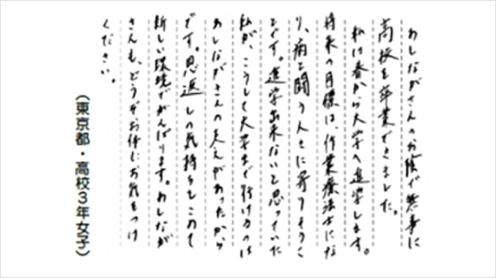 あしながさんのお陰で無事に
高校を卒業できました。
私は春から大学へ進学します。
将来の目標は、作業療法士にな
り、病と闘う人々に寄りそうこ
とです。進学出来ないと思っていた
私が、こうして大学まで行けるのは
あしながさんの支えがあったから
です。恩返しの気持ちもこめて
新しい環境でがんばります。あしなが
さんも、どうぞお体にお気をつけ
ください。
（東京都・高校3年女子）